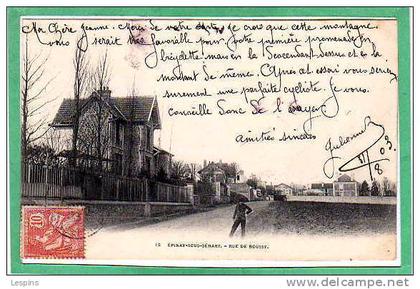 Ma Chère Jeanne. Merci de votre carte je crois que cette montagne
vous serait très favorable pour votre première promenade en
bicyclette mais en la descendant dessus et en la
montant de même. Après cet essai vous serez
surement une parfaite cycliste je vous
conseille donc de l'essayer
amitiés sincères
Julienne
8 03
10
15 ÉPINAY-SOUS-SÉNART. - RUE DE BOUSSY.
Lespins
www.delcampe.net